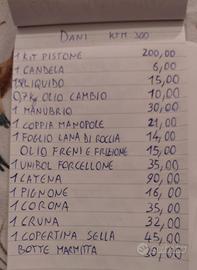 DANI KTM 300
1 KIT PISTONE 200,00
1 CANDELA 6,00
1 LIQUIDO 15,00
0,7 Kg OLIO CAMBIO 10,00
1 MANUBRIO 30,00
1 COPPIA MANOPOLE 21,00
1 FOGLIO LANA DI ROCCIA 14,00
OLIO FRENI E FRIZIONE 15,00
1 UNIBOL FORCELLONE 35,00
1 CATENA 90,00
1 PIGNONE 16,00
1 CORONA 35,00
1 CRUNA 32,00
1 COPERTINA SELLA 45,00
BOTTE MARMITTA 30,00